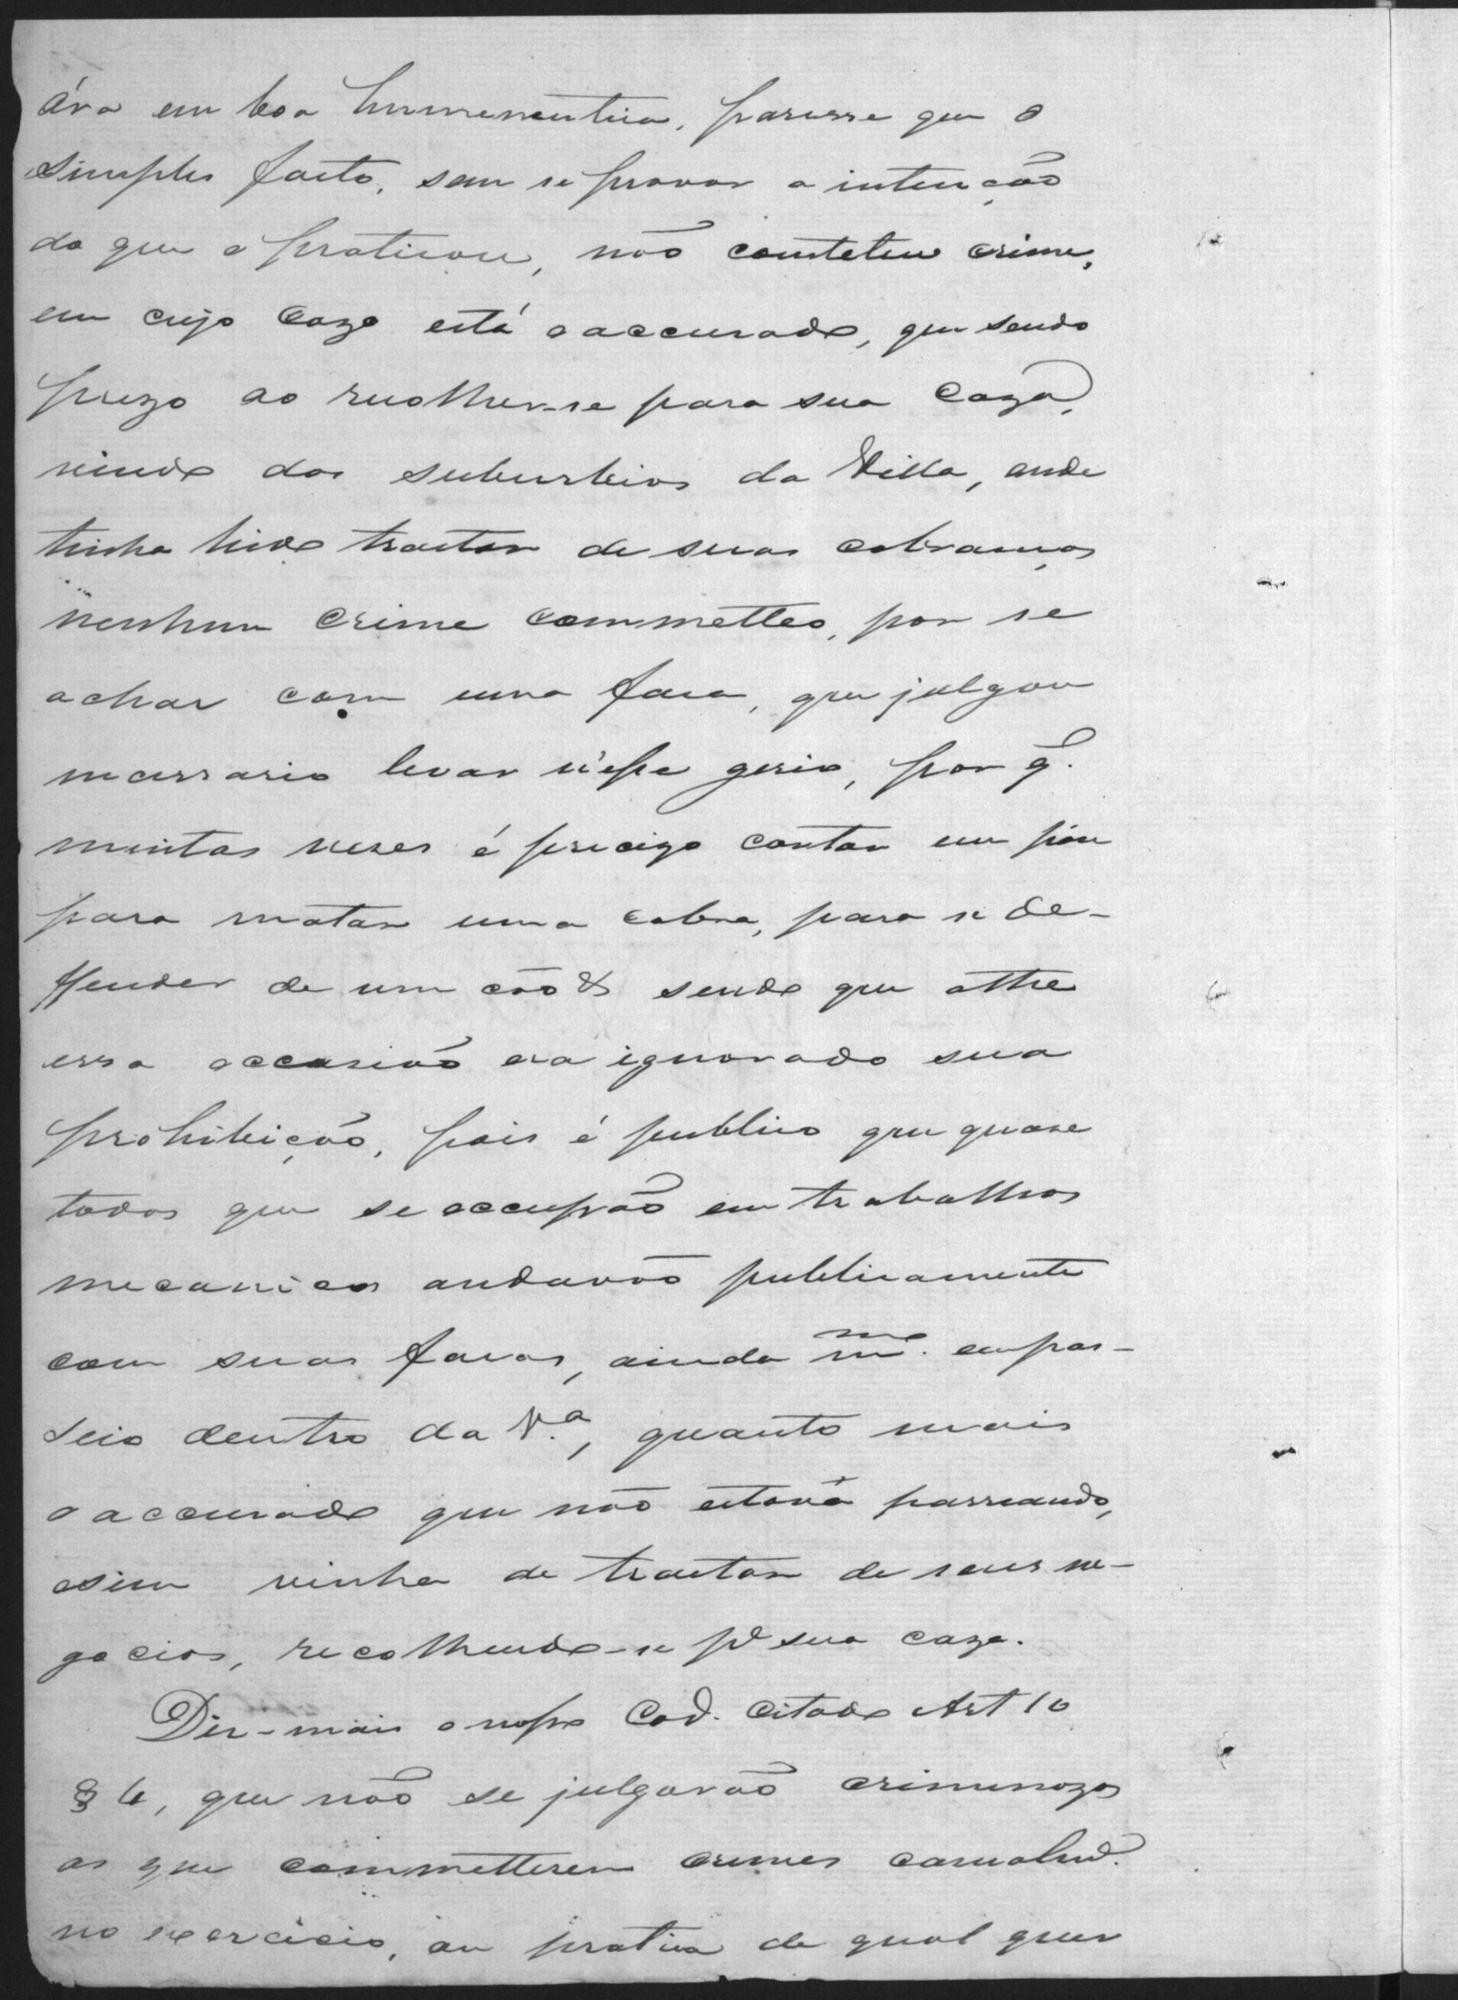 óra em boa hermeneutica, paresse que o
simples facto, sem se provar a intenção
do que o praticou, não constetue crime,
em cujo cazo está o accusado, que sendo
prezo ao recolher-se para sua caza,
vindo dos suburbios da Villa, onde
tinha hido tractar de suas cobranças
nenhum crime commetteo, por se
achar com uma faca, que julgou
necessario levar n'esse gerio, por q̃.
muitas veses é precizo cortar um páu
para matar uma cobra, para se de-
ffender de um cão & sendo que athe
essa occasião era ignorado sua
prohibição, pois é publico que quase
todos que se occupão em trabalhos
mecanicos andavão publicamente
com suas facas, ainda mmo. em pas-
seio dentro da Va., quanto mais
o accusado que não estava passeando,
e sim vinha de tractar de seus ne-
gocios, recolhendo-se pa sua caza.
Diz-mais o nosso Cod. citado Art 10
§ 4, que não se julgarão criminozos
os que commetterem crimes casualmte.
no exercicio, ou pratica de qualquer